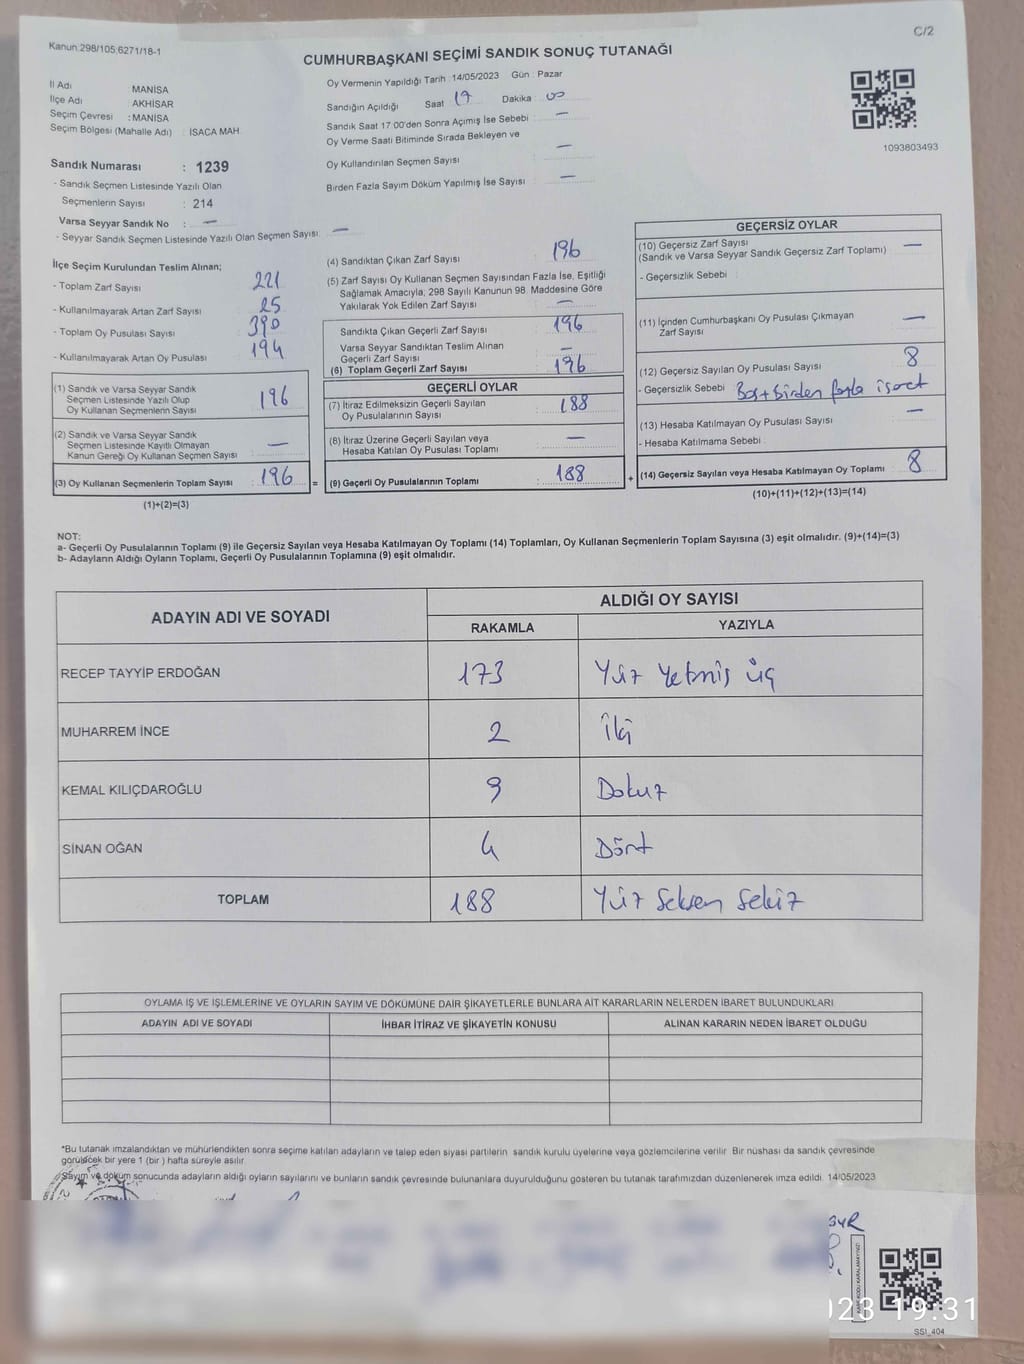 Kanun:298/105;6271/18-1
C/2
CUMHURBAŞKANI SEÇİMİ SANDIK SONUÇ TUTANAĞI
İl Adı : MANİSA
İlçe Adı : AKHİSAR
Seçim Çevresi : MANİSA
Seçim Bölgesi (Mahalle Adı) : ISACA MAH.
Sandık Numarası : 1239
- Sandık Seçmen Listesinde Yazılı Olan
Seçmenlerin Sayısı : 214
Varsa Seyyar Sandık No : —
- Seyyar Sandık Seçmen Listesinde Yazılı Olan Seçmen Sayısı: —
Oy Vermenin Yapıldığı Tarih : 14/05/2023 Gün : Pazar
Sandığın Açıldığı Saat : 17 Dakika : 00
Sandık Saat 17:00'den Sonra Açımış İse Sebebi : —
Oy Verme Saati Bitiminde Sırada Bekleyen ve
Oy Kullandırılan Seçmen Sayısı : —
Birden Fazla Sayım Döküm Yapılmış İse Sayısı : —
1093803493
İlçe Seçim Kurulundan Teslim Alınan;
- Toplam Zarf Sayısı : 221
- Kullanılmayarak Artan Zarf Sayısı : 25
- Toplam Oy Pusulası Sayısı : 390
- Kullanılmayarak Artan Oy Pusulası : 194
(1) Sandık ve Varsa Seyyar Sandık
Seçmen Listesinde Yazılı Olup
Oy Kullanan Seçmenlerin Sayısı : 196
(2) Sandık ve Varsa Seyyar Sandık
Seçmen Listesinde Kayıtlı Olmayan
Kanun Gereği Oy Kullanan Seçmen Sayısı : —
(3) Oy Kullanan Seçmenlerin Toplam Sayısı : 196 =
(1)+(2)=(3)
(4) Sandıktan Çıkan Zarf Sayısı : 196
(5) Zarf Sayısı Oy Kullanan Seçmen Sayısından Fazla İse, Eşitliği
Sağlamak Amacıyla, 298 Sayılı Kanunun 98. Maddesine Göre
Yakılarak Yok Edilen Zarf Sayısı : —
Sandıkta Çıkan Geçerli Zarf Sayısı : 196
Varsa Seyyar Sandıktan Teslim Alınan
Geçerli Zarf Sayısı : —
(6) Toplam Geçerli Zarf Sayısı : 196
GEÇERLİ OYLAR
(7) İtiraz Edilmeksizin Geçerli Sayılan
Oy Pusulalarının Sayısı : 188
(8) İtiraz Üzerine Geçerli Sayılan veya
Hesaba Katılan Oy Pusulası Toplamı : —
(9) Geçerli Oy Pusulalarının Toplamı : 188 +
GEÇERSİZ OYLAR
(10) Geçersiz Zarf Sayısı
(Sandık ve Varsa Seyyar Sandık Geçersiz Zarf Toplamı) : —
- Geçersizlik Sebebi :
(11) İçinden Cumhurbaşkanı Oy Pusulası Çıkmayan
Zarf Sayısı : —
(12) Geçersiz Sayılan Oy Pusulası Sayısı : 8
- Geçersizlik Sebebi : Boş+Birden fazla işaret
(13) Hesaba Katılmayan Oy Pusulası Sayısı : —
- Hesaba Katılmama Sebebi :
(14) Geçersiz Sayılan veya Hesaba Katılmayan Oy Toplamı : 8
(10)+(11)+(12)+(13)=(14)
NOT:
a- Geçerli Oy Pusulalarının Toplamı (9) ile Geçersiz Sayılan veya Hesaba Katılmayan Oy Toplamı (14) Toplamları, Oy Kullanan Seçmenlerin Toplam Sayısına (3) eşit olmalıdır. (9)+(14)=(3)
b- Adayların Aldığı Oyların Toplamı, Geçerli Oy Pusulalarının Toplamına (9) eşit olmalıdır.
ADAYIN ADI VE SOYADI
ALDIĞI OY SAYISI
RAKAMLA YAZIYLA
RECEP TAYYİP ERDOĞAN 173 Yüz Yetmiş üç
MUHARREM İNCE 2 İki
KEMAL KILIÇDAROĞLU 9 Dokuz
SİNAN OĞAN 4 Dört
TOPLAM 188 Yüz Seksen Sekiz
OYLAMA İŞ VE İŞLEMLERİNE VE OYLARIN SAYIM VE DÖKÜMÜNE DAİR ŞİKAYETLERLE BUNLARA AİT KARARLARIN NELERDEN İBARET BULUNDUKLARI
ADAYIN ADI VE SOYADI İHBAR İTİRAZ VE ŞİKAYETİN KONUSU ALINAN KARARIN NEDEN İBARET OLDUĞU
*Bu tutanak imzalandıktan ve mühürlendikten sonra seçime katılan adayların ve talep eden siyasi partilerin sandık kurulu üyelerine veya gözlemcilerine verilir. Bir nüshası da sandık çevresinde
görülecek bir yere 1 (bir) hafta süreyle asılır.
Sayım ve döküm sonucunda adayların aldığı oyların sayılarını ve bunların sandık çevresinde bulunanlara duyurulduğunu gösteren bu tutanak tarafımızdan düzenlenerek imza edildi. 14/05/2023
KARE KODU KARALAMAYINIZ!
023 19:31
SS1_404